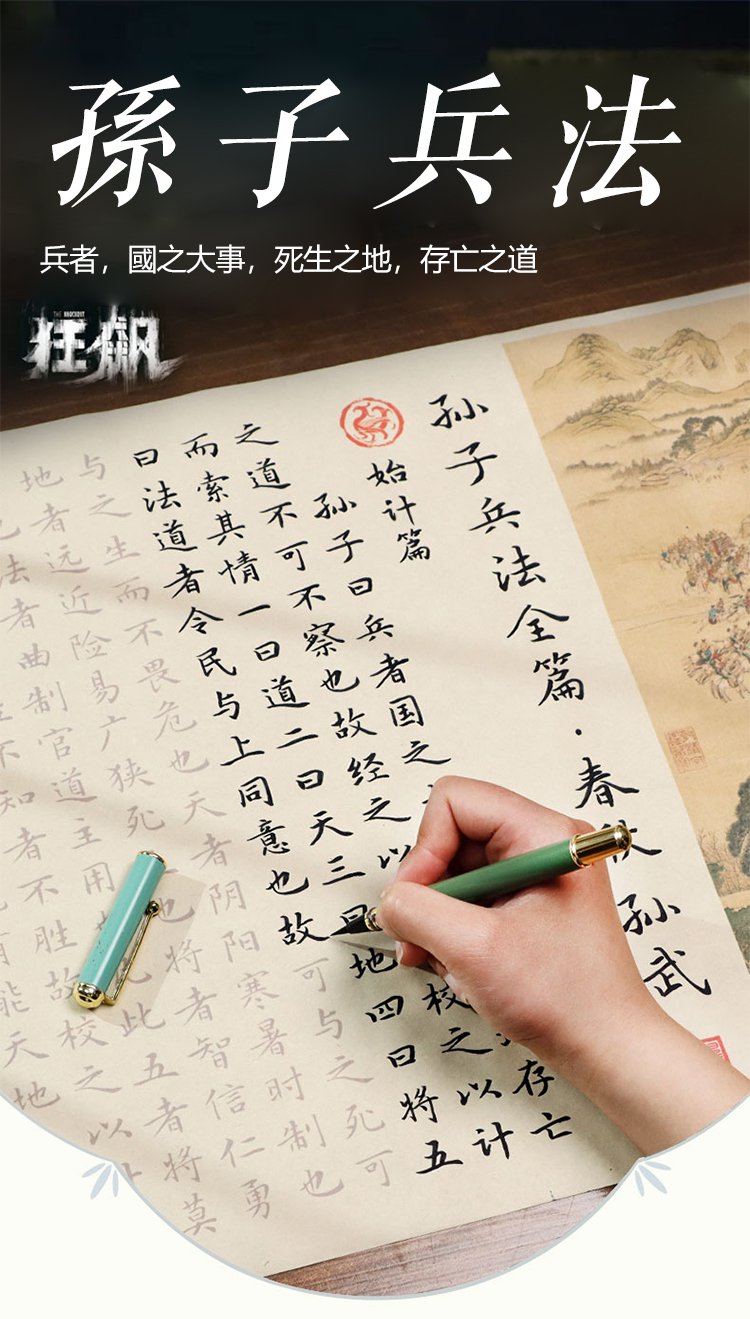 孫子兵法
兵者，國之大事，死生之地，存亡之道
THE KNOCKOUT
狂飙
孙子兵法全篇·春秋 孙武
始计篇
孙子曰兵者国之 存亡
之道不可不察也故经之以 校之以计
而索其情一曰道二曰天三曰地四曰将五
曰法道者令民与上同意也故可与之死可
与之生而不畏危也天者阴阳寒暑时制也
地者远近险易广狭死 也将者智信仁勇
法者曲制官道主用 此五者将莫
不知者不胜故校之以
能天地